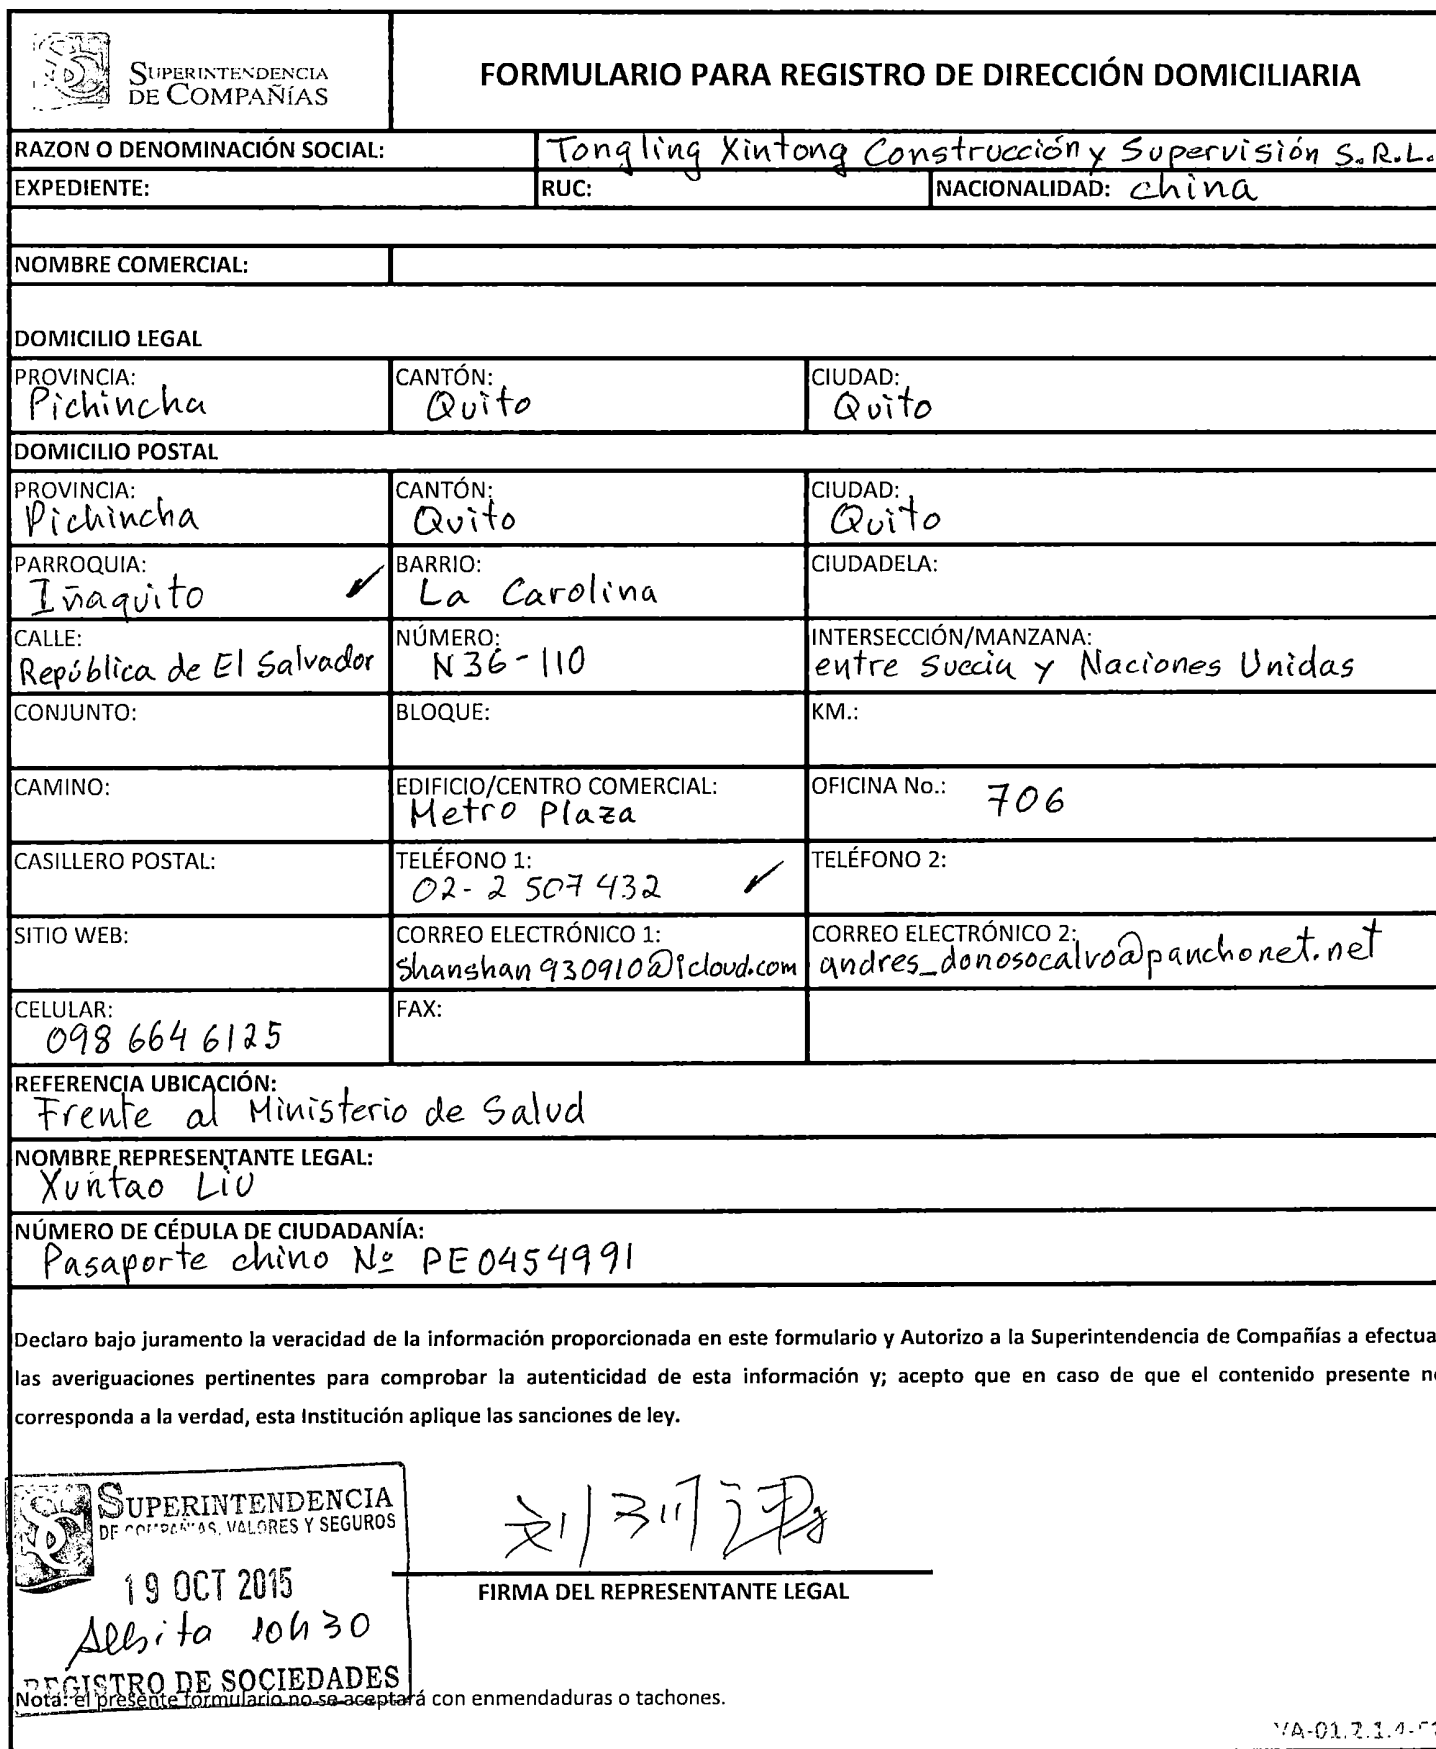 SUPERINTENDENCIA
DE COMPAÑÍAS
FORMULARIO PARA REGISTRO DE DIRECCIÓN DOMICILIARIA
RAZON O DENOMINACIÓN SOCIAL: Tongling Xintong Construcción y Supervisión S.R.L.
EXPEDIENTE: RUC: NACIONALIDAD: china
NOMBRE COMERCIAL:
DOMICILIO LEGAL
PROVINCIA: CANTÓN: CIUDAD:
Pichincha Quito Quito
DOMICILIO POSTAL
PROVINCIA: CANTÓN: CIUDAD:
Pichincha Quito Quito
PARROQUIA: BARRIO: CIUDADELA:
Iñaquito ✓ La Carolina
CALLE: NÚMERO: INTERSECCIÓN/MANZANA:
República de El Salvador N36-110 entre Suecia y Naciones Unidas
CONJUNTO: BLOQUE: KM.:
CAMINO: EDIFICIO/CENTRO COMERCIAL: OFICINA No.: 706
Metro Plaza
CASILLERO POSTAL: TELÉFONO 1: TELÉFONO 2:
02-2 507 432 ✓
SITIO WEB: CORREO ELECTRÓNICO 1: CORREO ELECTRÓNICO 2:
shanshan930910@icloud.com andres_donosocalvo@panchonet.net
CELULAR: FAX:
098 664 6125
REFERENCIA UBICACIÓN:
Frente al Ministerio de Salud
NOMBRE REPRESENTANTE LEGAL:
Xuntao Liu
NÚMERO DE CÉDULA DE CIUDADANÍA:
Pasaporte chino Nº PE0454991
Declaro bajo juramento la veracidad de la información proporcionada en este formulario y Autorizo a la Superintendencia de Compañías a efectua
las averiguaciones pertinentes para comprobar la autenticidad de esta información y; acepto que en caso de que el contenido presente no
corresponda a la verdad, esta Institución aplique las sanciones de ley.
SUPERINTENDENCIA
DE COMPAÑIAS, VALORES Y SEGUROS
19 OCT 2015
10h30
REGISTRO DE SOCIEDADES
FIRMA DEL REPRESENTANTE LEGAL
Nota: el presente formulario no se aceptará con enmendaduras o tachones.